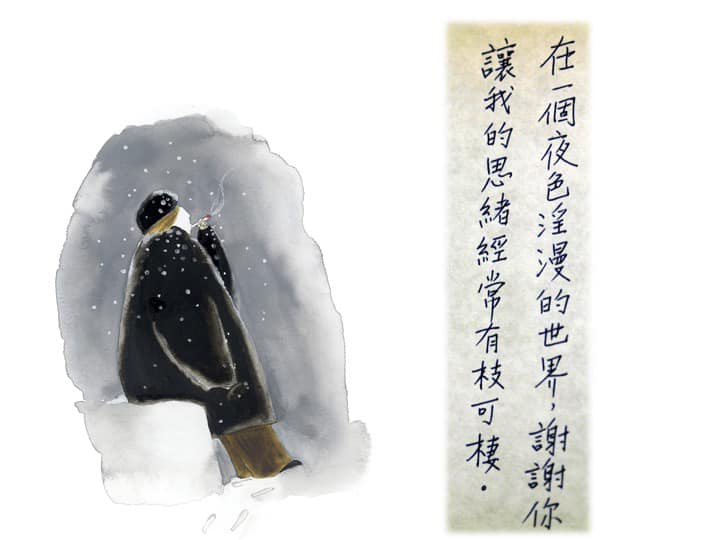 在一個夜色淫漫的世界，謝謝你
讓我的思緒經常有枝可棲。